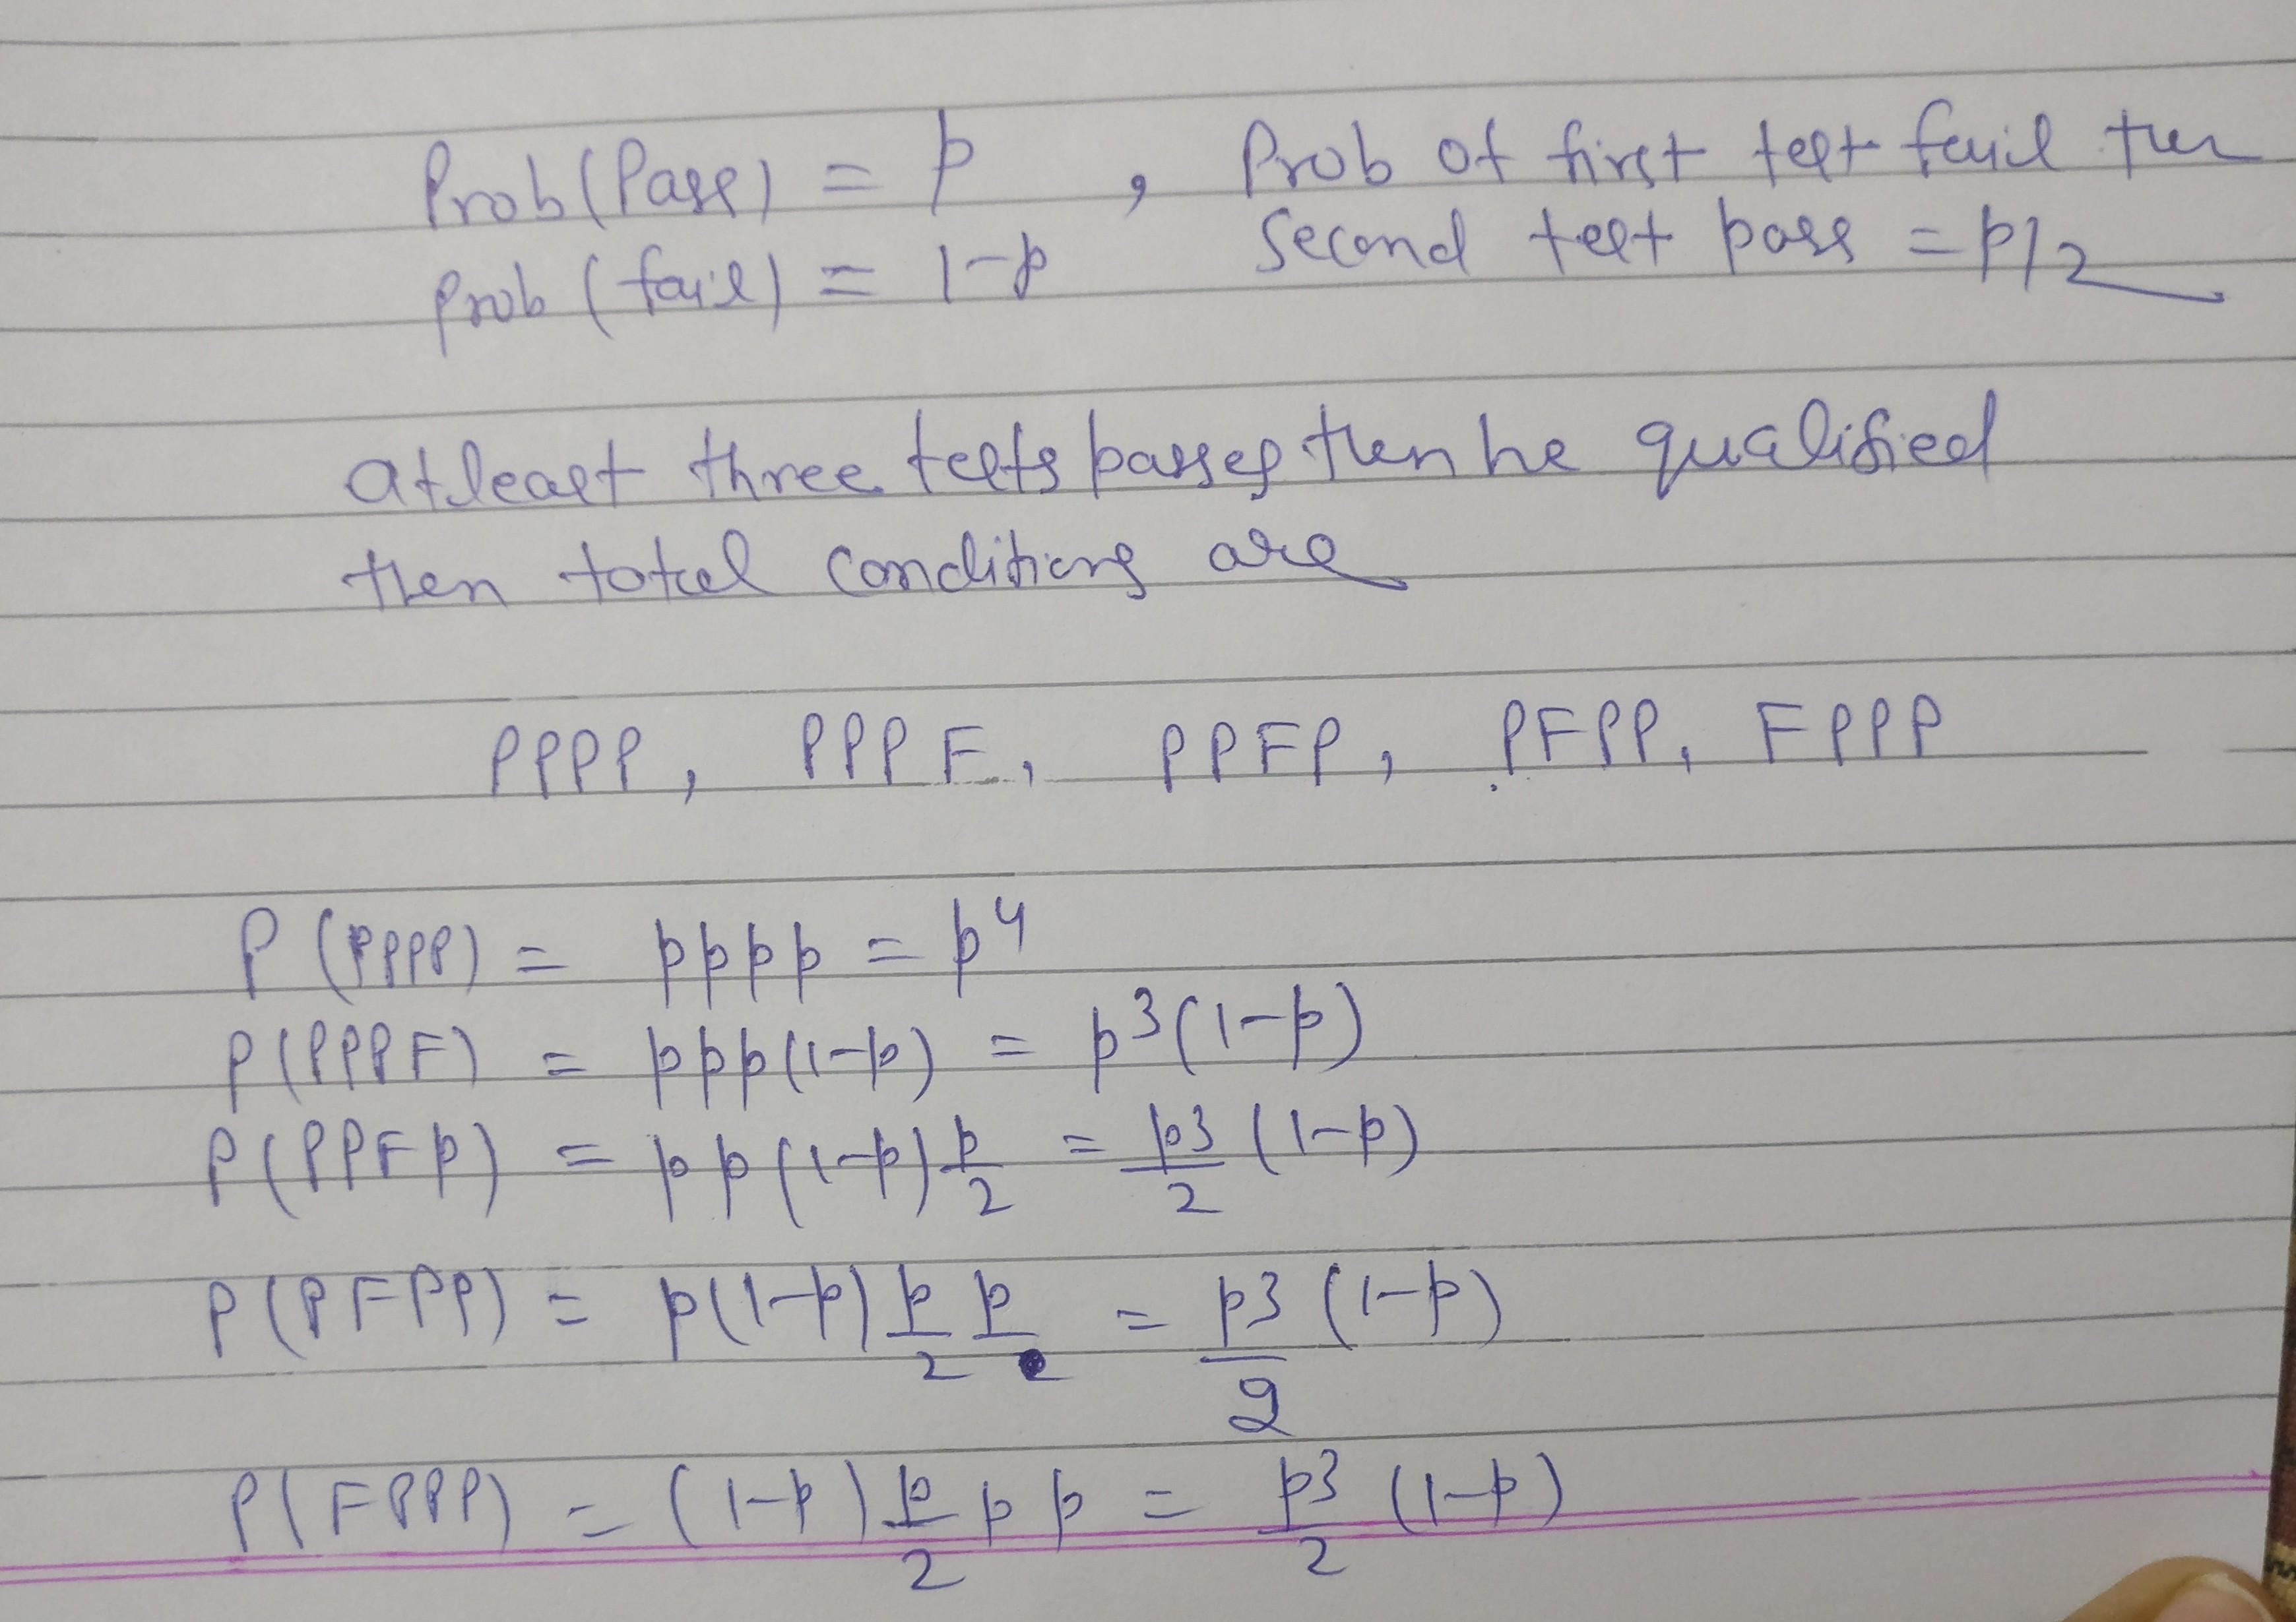 Prob(Pass) = p , Prob of first test fail then
prob (fail) = 1-p second test pass = p/2
atleast three tests passes then he qualified
then total conditions are
PPPP, PPPF, PPFP, PFPP, FPPP
P(PPPP) = pppp = p⁴
P(PPPF) = ppp(1-p) = p³(1-p)
P(PPFP) = pp(1-p) p/2 = p³/2 (1-p)
P(PFPP) = p(1-p) p/2 p = p³/2 (1-p)
P(FPPP) = (1-p) p/2 p p = p³/2 (1-p)